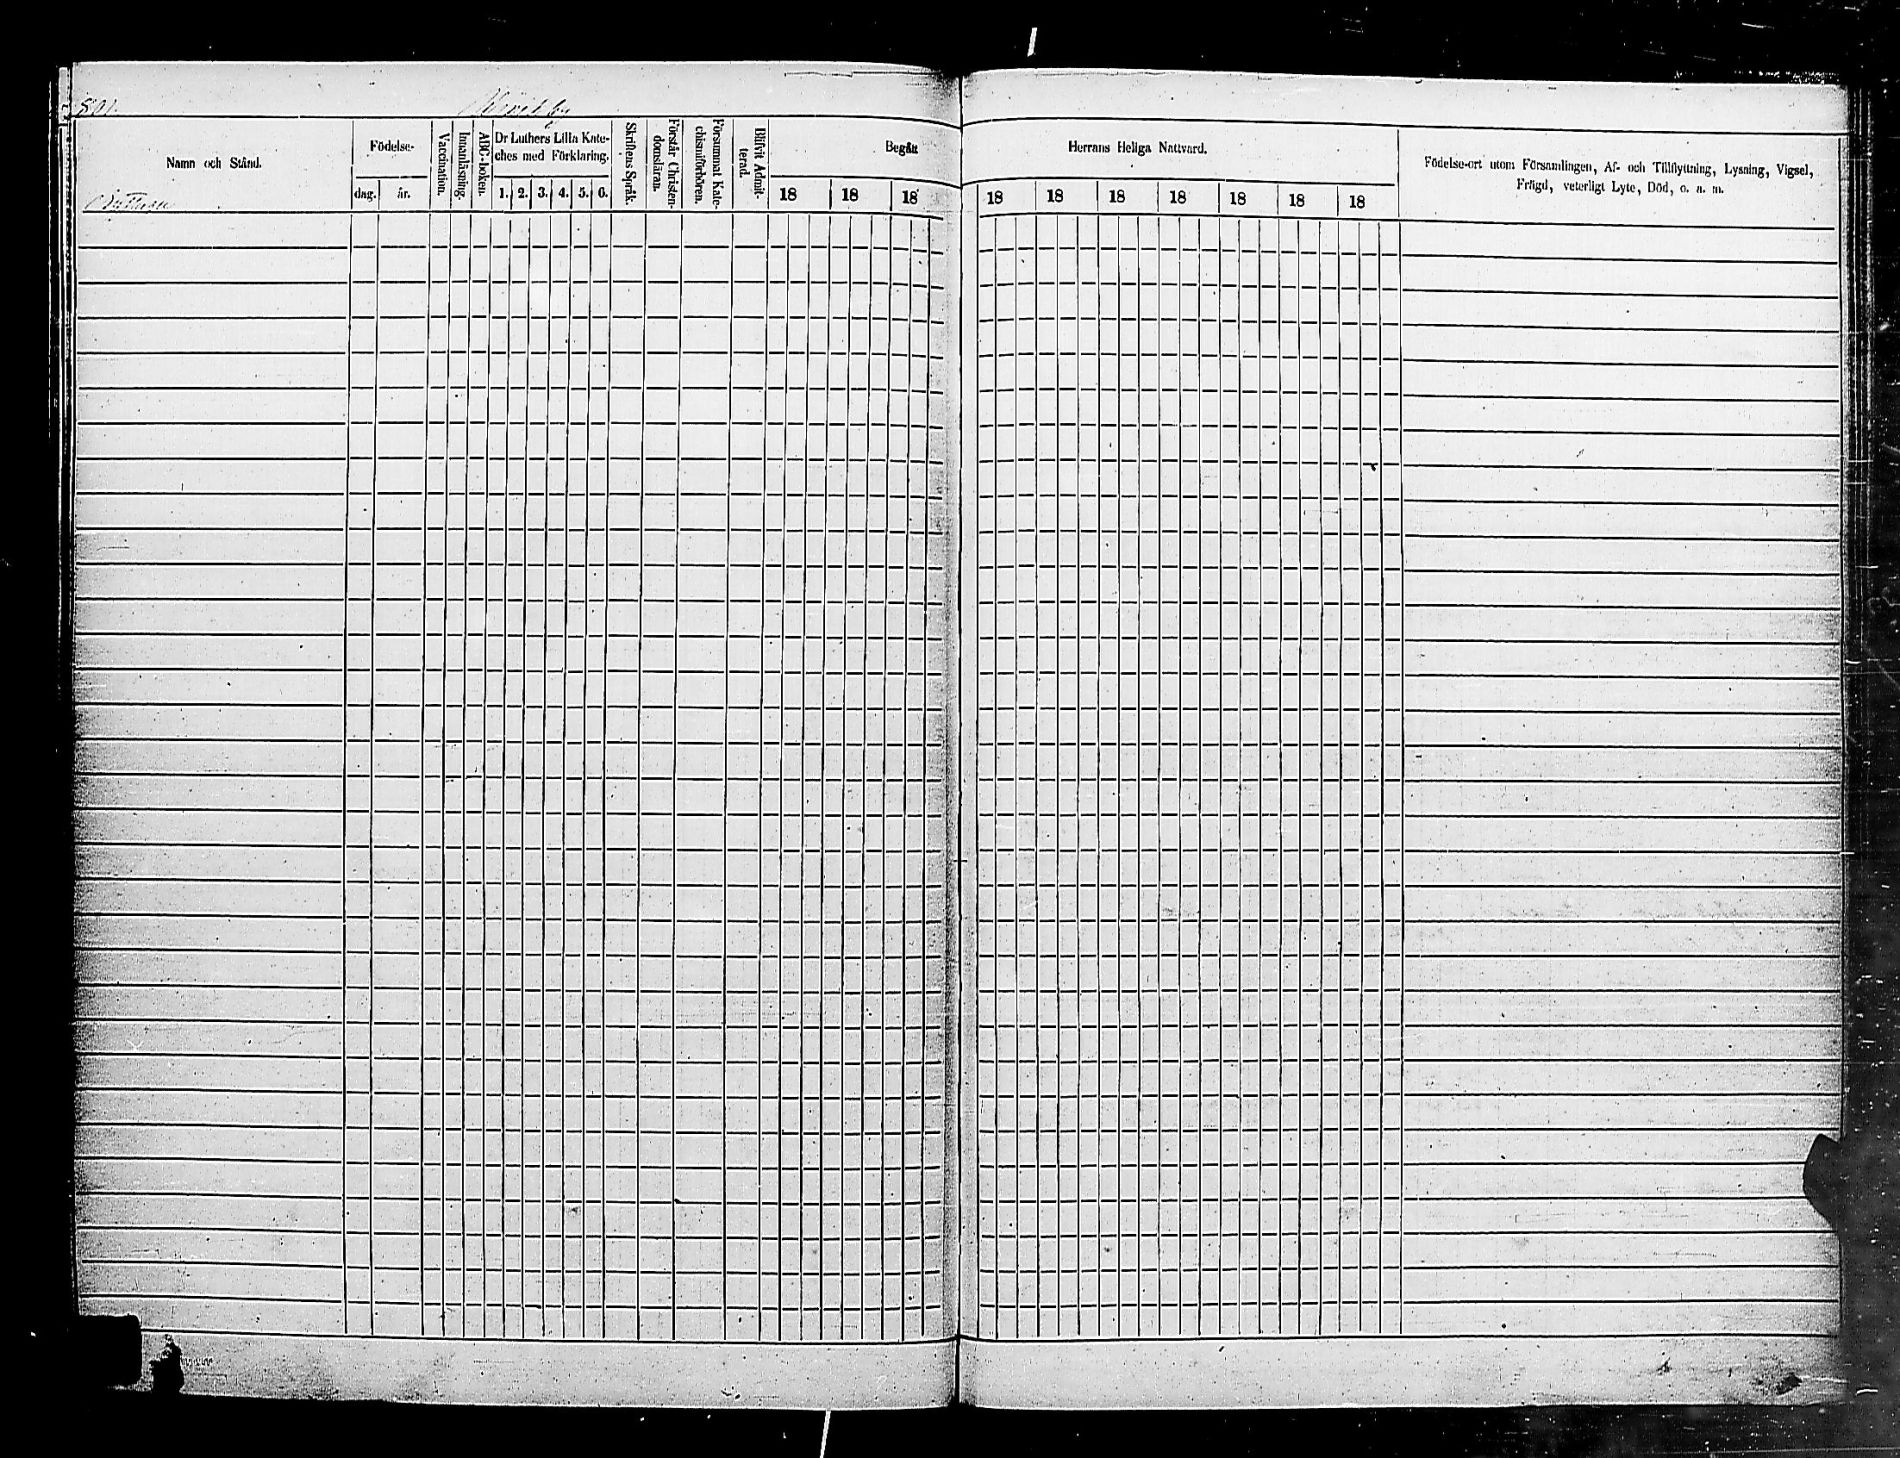 801.
Namn och Stånd.
Födelse-
dag. år.
Vaccination.
Innanläsning.
ABC-boken.
Dr Luthers Lilla Kate-
ches med Förklaring.
1. 2. 3. 4. 5. 6.
Skriftens Språk.
Förstår Christen-
domsläran.
Försummat Kate-
chismiförhören.
Blifvit Admit-
terad.
Begått
18 18 18
Herrans Heliga Nattvard.
18 18 18 18 18 18 18
Födelse-ort utom Församlingen, Af- och Tillflyttning, Lysning, Vigsel,
Frägd, veterligt Lyte, Död, o. s. m.